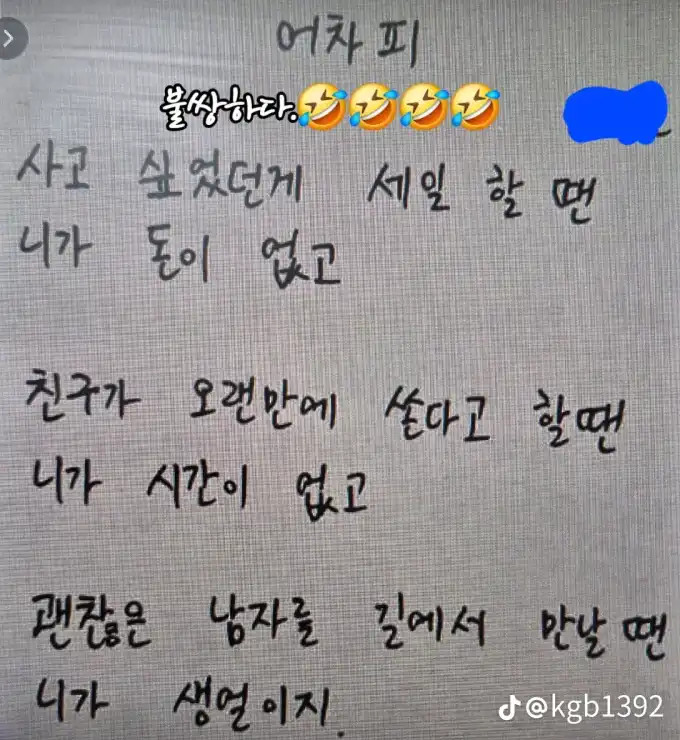 어차피
불쌍하다.🤣🤣🤣🤣
사고 싶었던게 세일 할 땐
니가 돈이 없고
친구가 오랜만에 쏜다고 할땐
니가 시간이 없고
괜찮은 남자를 길에서 만날 땐
니가 생얼이지.
@kgb1392